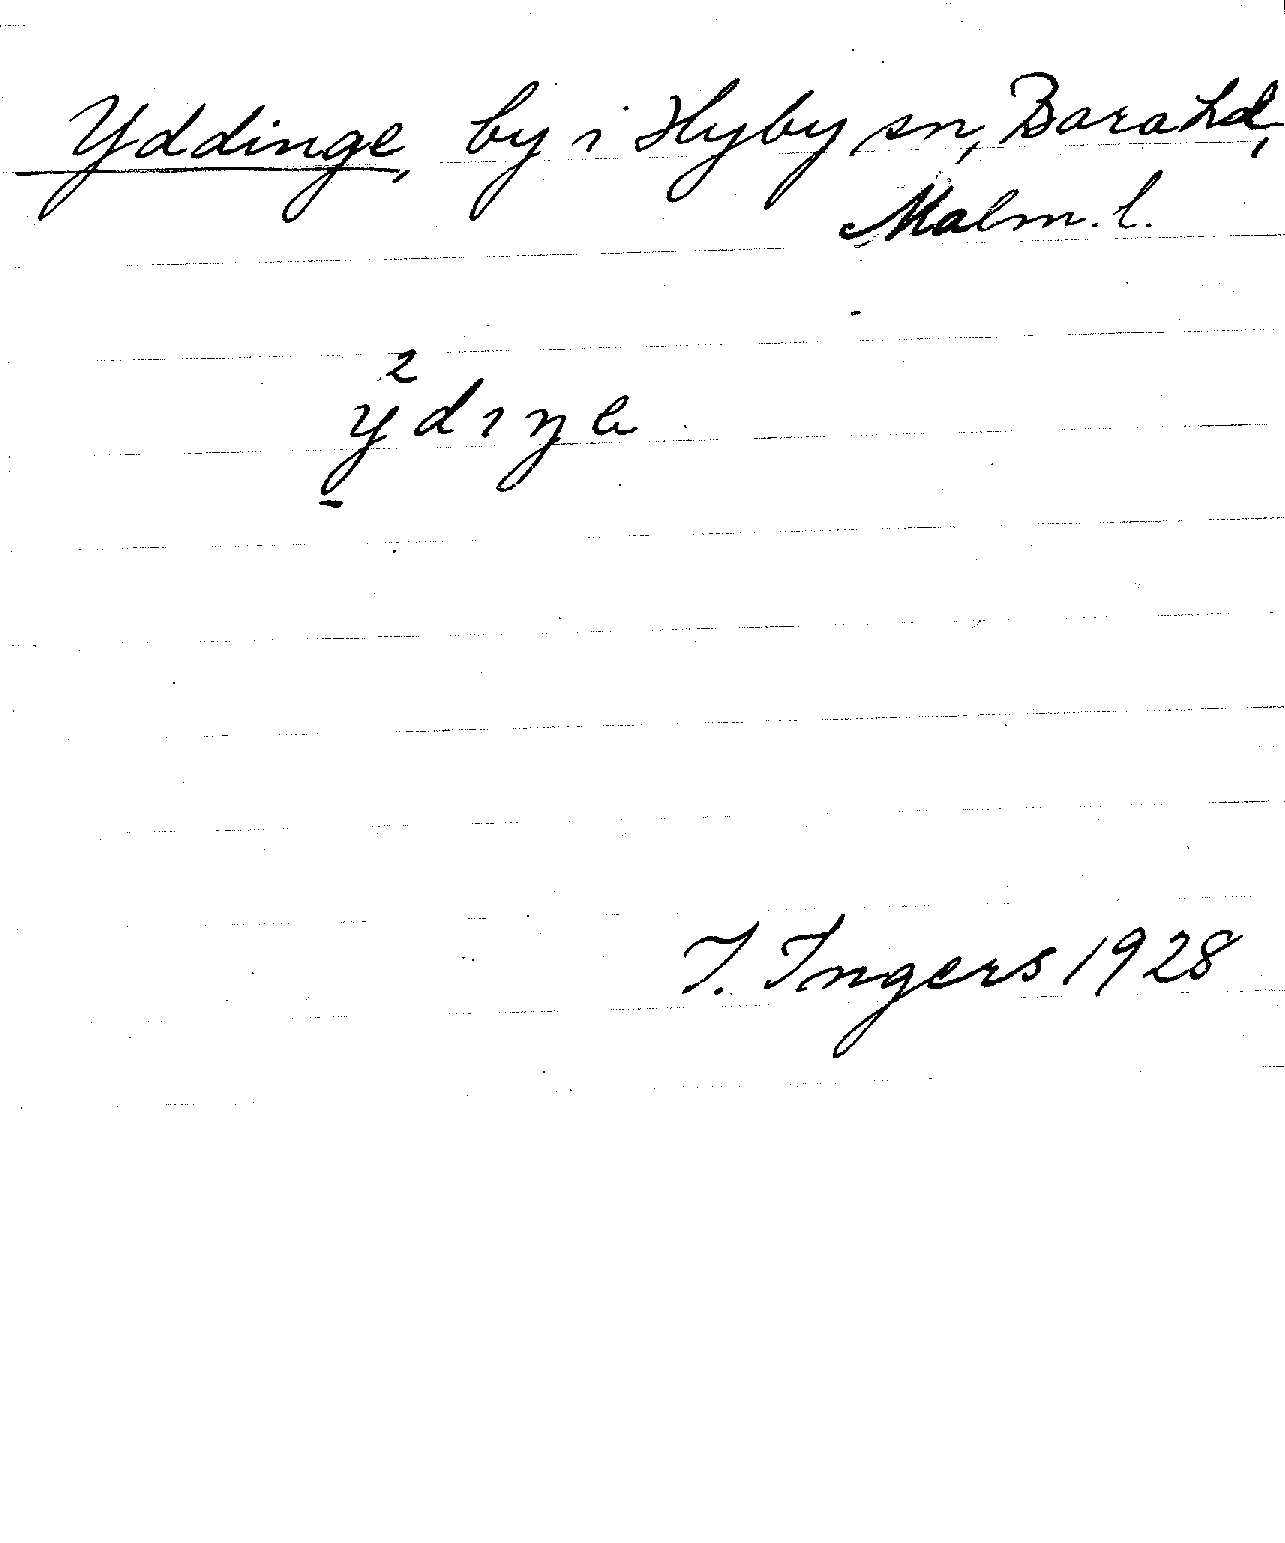 Yddinge, by i Hyby sn, Bara hd,
Malm. l.
ẏ²dıŋɐ
I. Ingers 1928